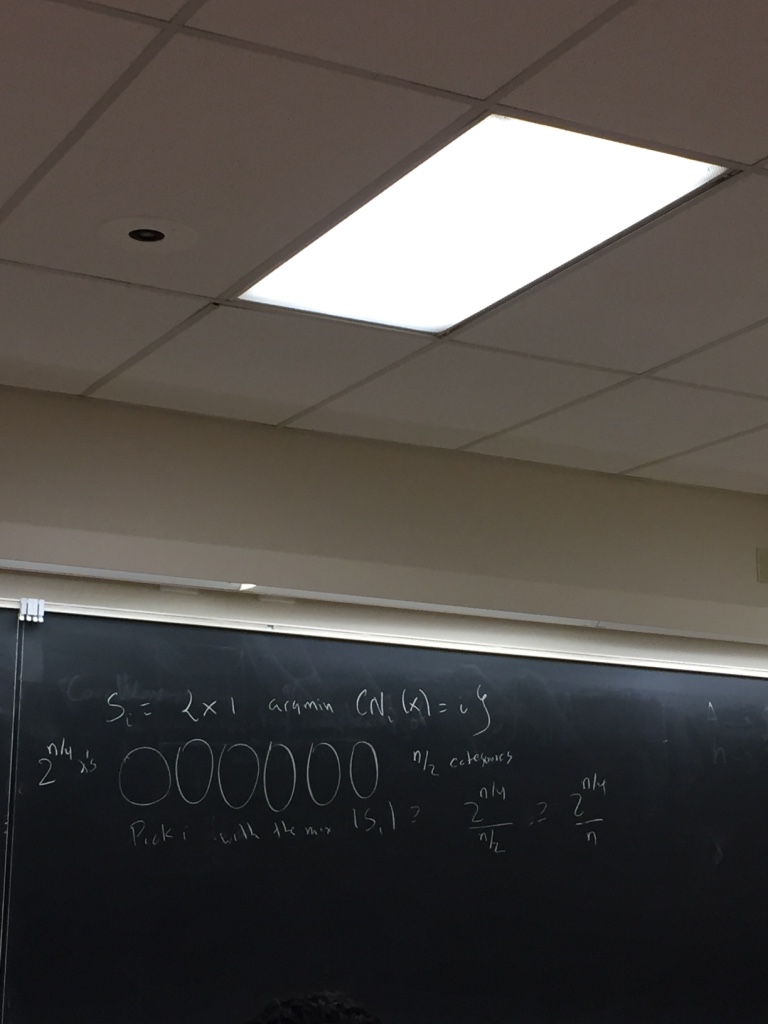 S_i = {x | argmin CN_i(x) = i}
2^{n/4} x's n/2 categories
Pick i with the max |S_i| ≥ 2^{n/4} / n/2 ≥ 2^{n/4} / n